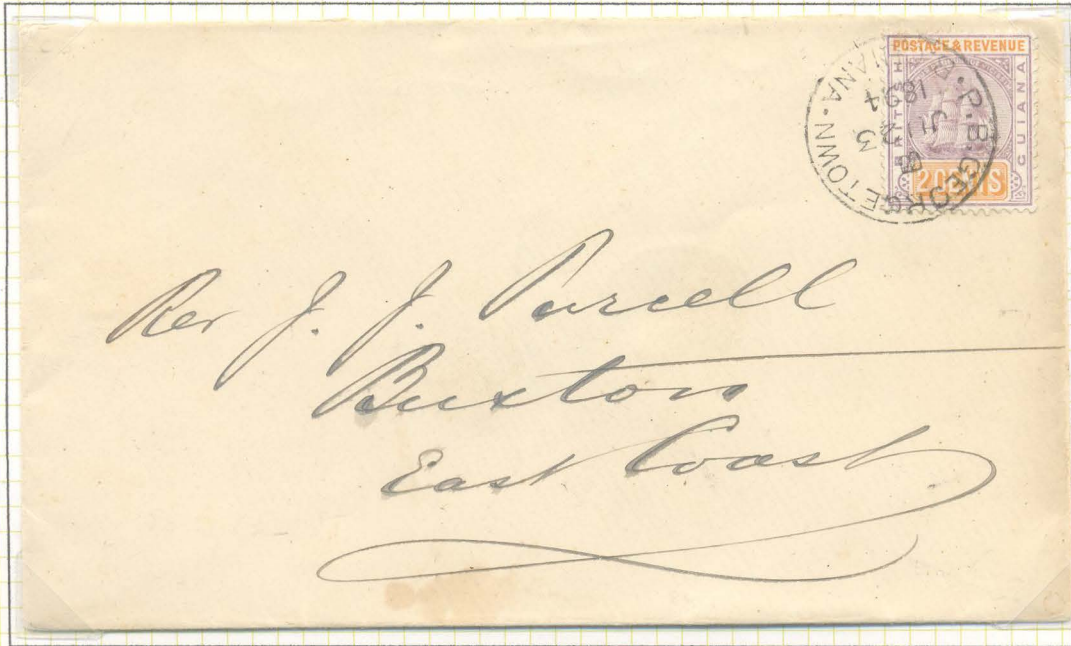 POSTAGE & REVENUE
BRITISH
GUIANA
2 CENTS
P.B. GEORGETOWN
B
23
1894
Rev J. J. Purcell
Buxton
East Coast